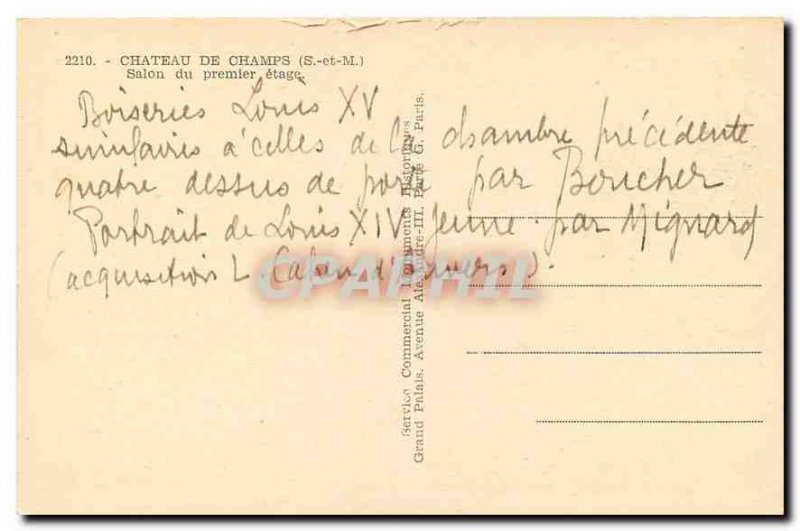 2210. - CHATEAU DE CHAMPS (S.-et-M.)
Salon du premier étage.
Boiseries Louis XV
similaires à celles de la chambre précédente
quatre dessus de porte par Boucher
Portrait de Louis XIV jeune par Mignard
(acquisition L. Cahen d'Anvers).
CPAPHIL
Service Commercial Monuments Historiques
Grand Palais. Avenue Alexandre-III. Porte G. Paris.